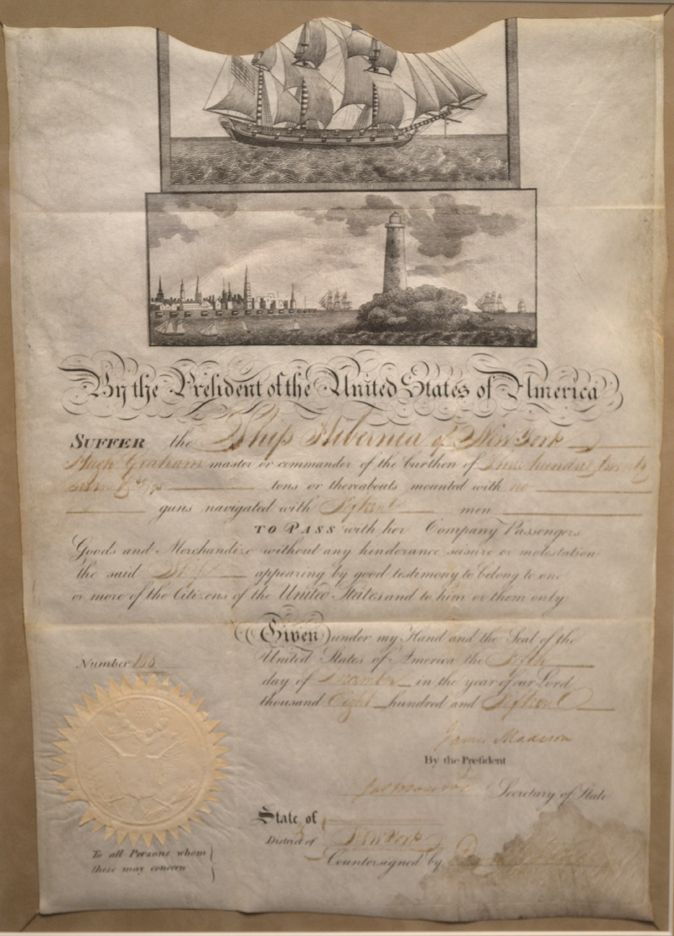 By the President of the United States of America
SUFFER the Ship Hibernia of New York
Hugh Graham master or commander of the burthen of Three hundred
tons or thereabouts mounted with no
guns navigated with men
TO PASS with her Company Passengers
Goods and Merchandize without any hinderance seisure or molestation
the said Ship appearing by good testimony to belong to one
or more of the Citizens of the United States and to him or them only
Given under my Hand and the Seal of the
United States of America the
Number
day of December in the year of our Lord
thousand Eight hundred and
James Madison
By the President
Jas Monroe Secretary of State
State of
District of New York
To all Persons whom
these may concern
Countersigned by